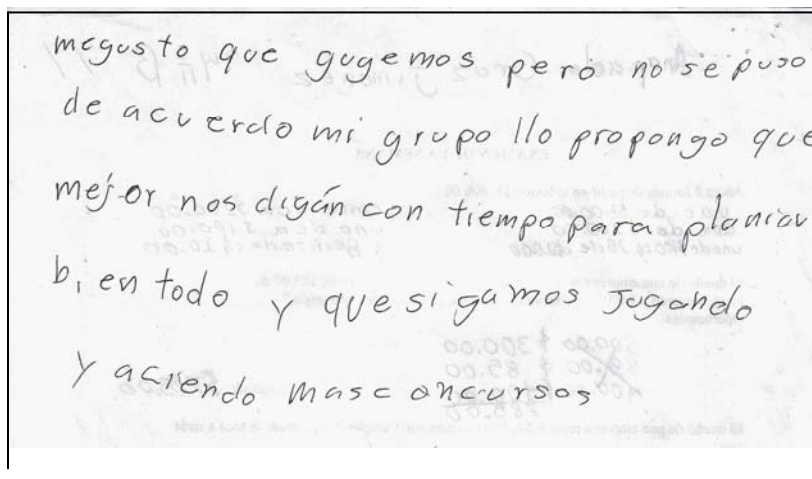 megusto que gugemos pero no se puso
de acuerdo mi grupo llo propongo que
mejor nos digán con tiempo para planiar
bien todo y que sigamos Jugando
y aciendo mas concursos